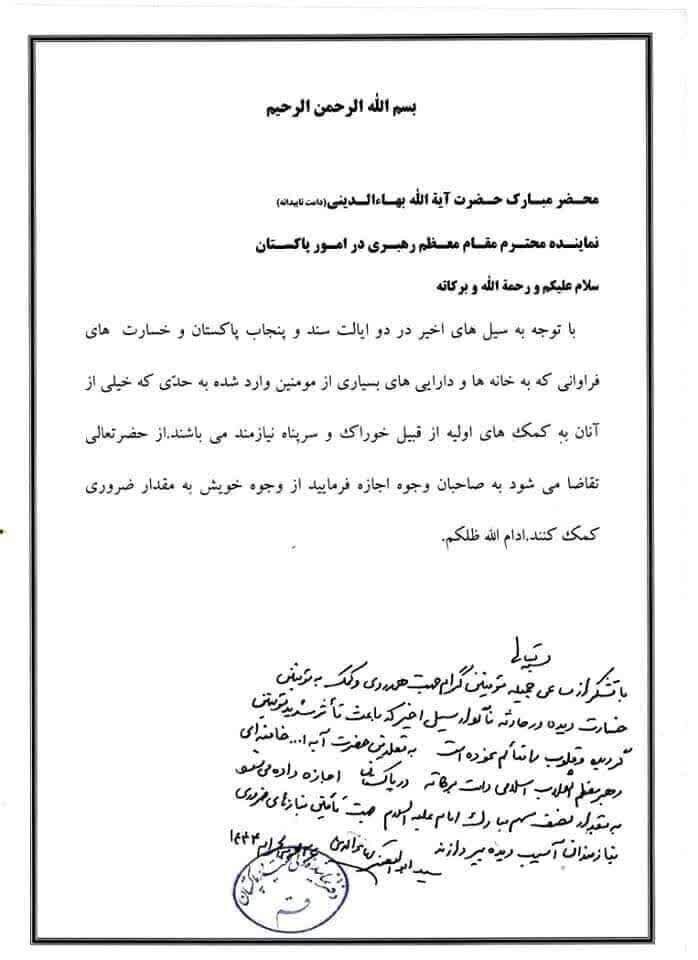 بسم الله الرحمن الرحیم
محضر مبارک حضرت آیة الله بهاءالدینی(دامت تاییداته)
نماینده محترم مقام معظم رهبری در امور پاکستان
سلام علیکم و رحمة الله و برکاته
با توجه به سیل های اخیر در دو ایالت سند و پنجاب پاکستان و خسارت های
فراوانی که به خانه ها و دارایی های بسیاری از مومنین وارد شده به حدّی که خیلی از
آنان به کمک های اولیه از قبیل خوراک و سرپناه نیازمند می باشند.از حضرتعالی
تقاضا می شود به صاحبان وجوه اجازه فرمایید از وجوه خویش به مقدار ضروری
کمک کنند.ادام الله ظلکم.
با تشکر از مساعی جمیله مومنین گرام جهت همدردی و کمک به مومنین
خسارت دیده در حادثه ناگوار سیل اخیر که باعث تأثر شدید مومنین
گردیده و قلوب را متألم نموده است به مقلدین حضرت آیة ا... خامنه ای
رهبر معظم انقلاب اسلامی دامت برکاته در پاکستان اجازه داده می شود
به مقدار نصف سهم مبارک امام علیه السلام جهت تأمین نیازهای ضروری
نیازمندان آسیب دیده بپردازند
سید ابوالحسن بهاءالدینی
قم